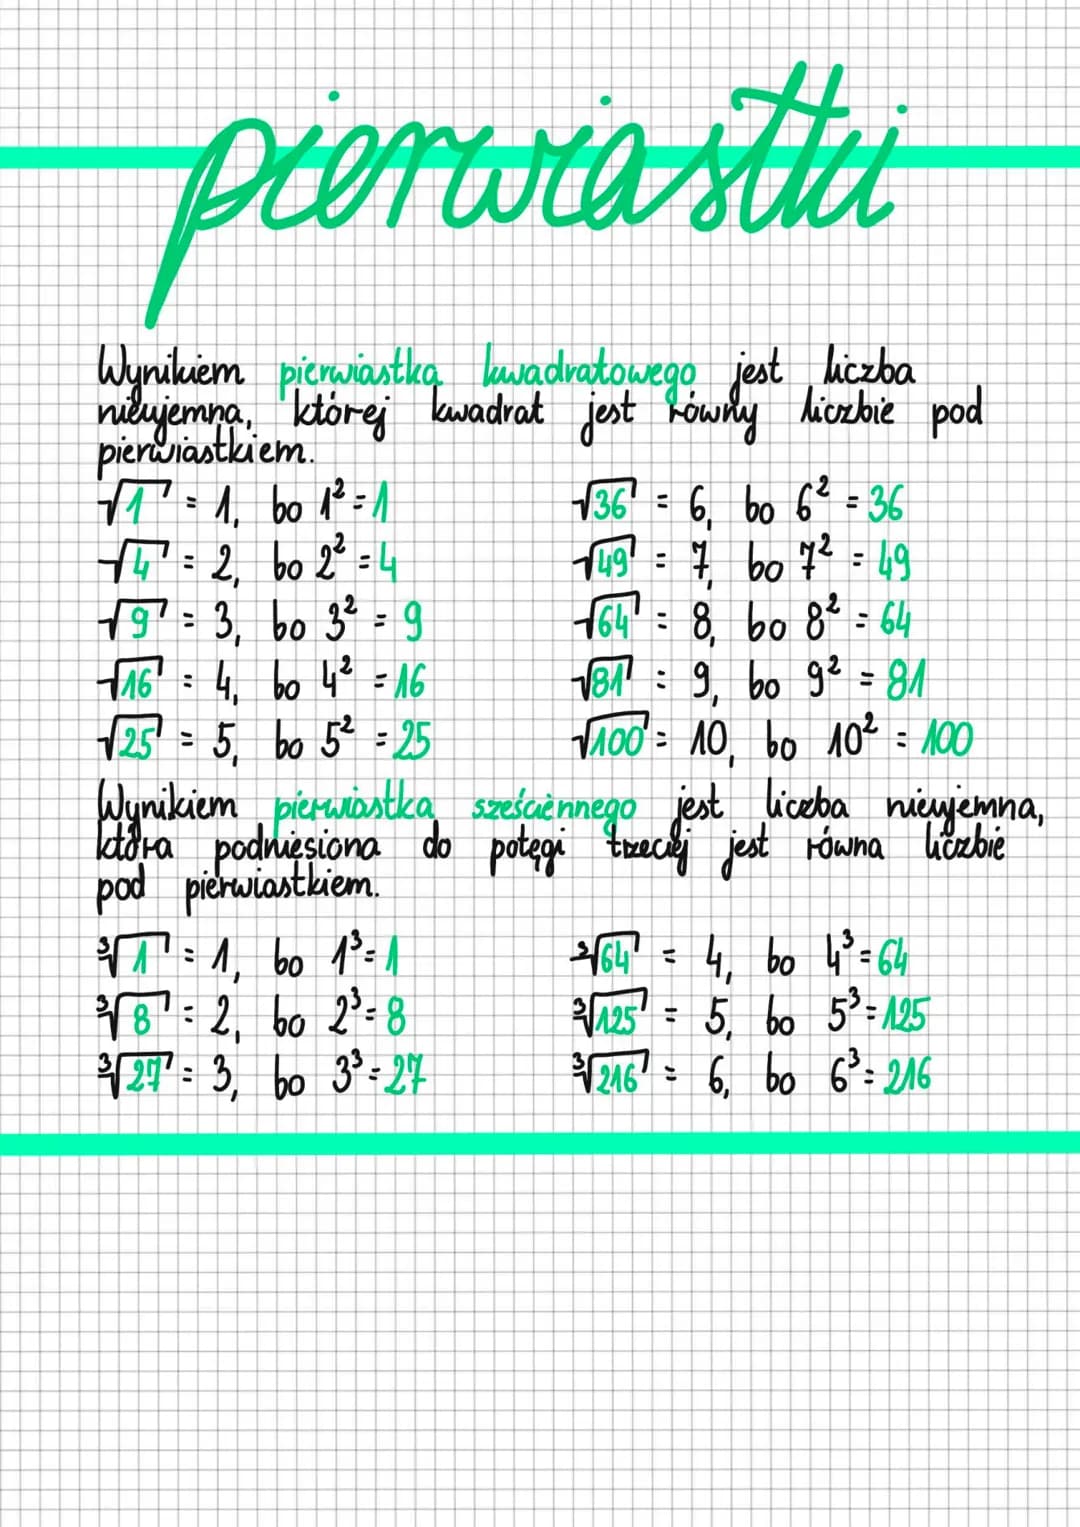 pierwiastki
Wynikiem pierwiastka kwadratowego jest liczba
nieujemna, której kwadrat jest równy liczbie pod
pierwiastkiem.
√1 = 1, bo 1² = 1
√4 = 2, bo 2² = 4
√9 = 3, bo 3² = 9
√16 = 4, bo 4² = 16
√25 = 5, bo 5² = 25
√36 = 6, bo 6² = 36
√49 = 7, bo 7² = 49
√64 = 8, bo 8² = 64
√81 = 9, bo 9² = 81
√100 = 10, bo 10² = 100
Wynikiem pierwiastka sześciennego jest liczba nieujemna,
która podniesiona do potęgi trzeciej jest równa liczbie
pod pierwiastkiem.
³√1 = 1, bo 1³ = 1
³√8 = 2, bo 2³ = 8
³√27 = 3, bo 3³ = 27
³√64 = 4, bo 4³ = 64
³√125 = 5, bo 5³ = 125
³√216 = 6, bo 6³ = 216